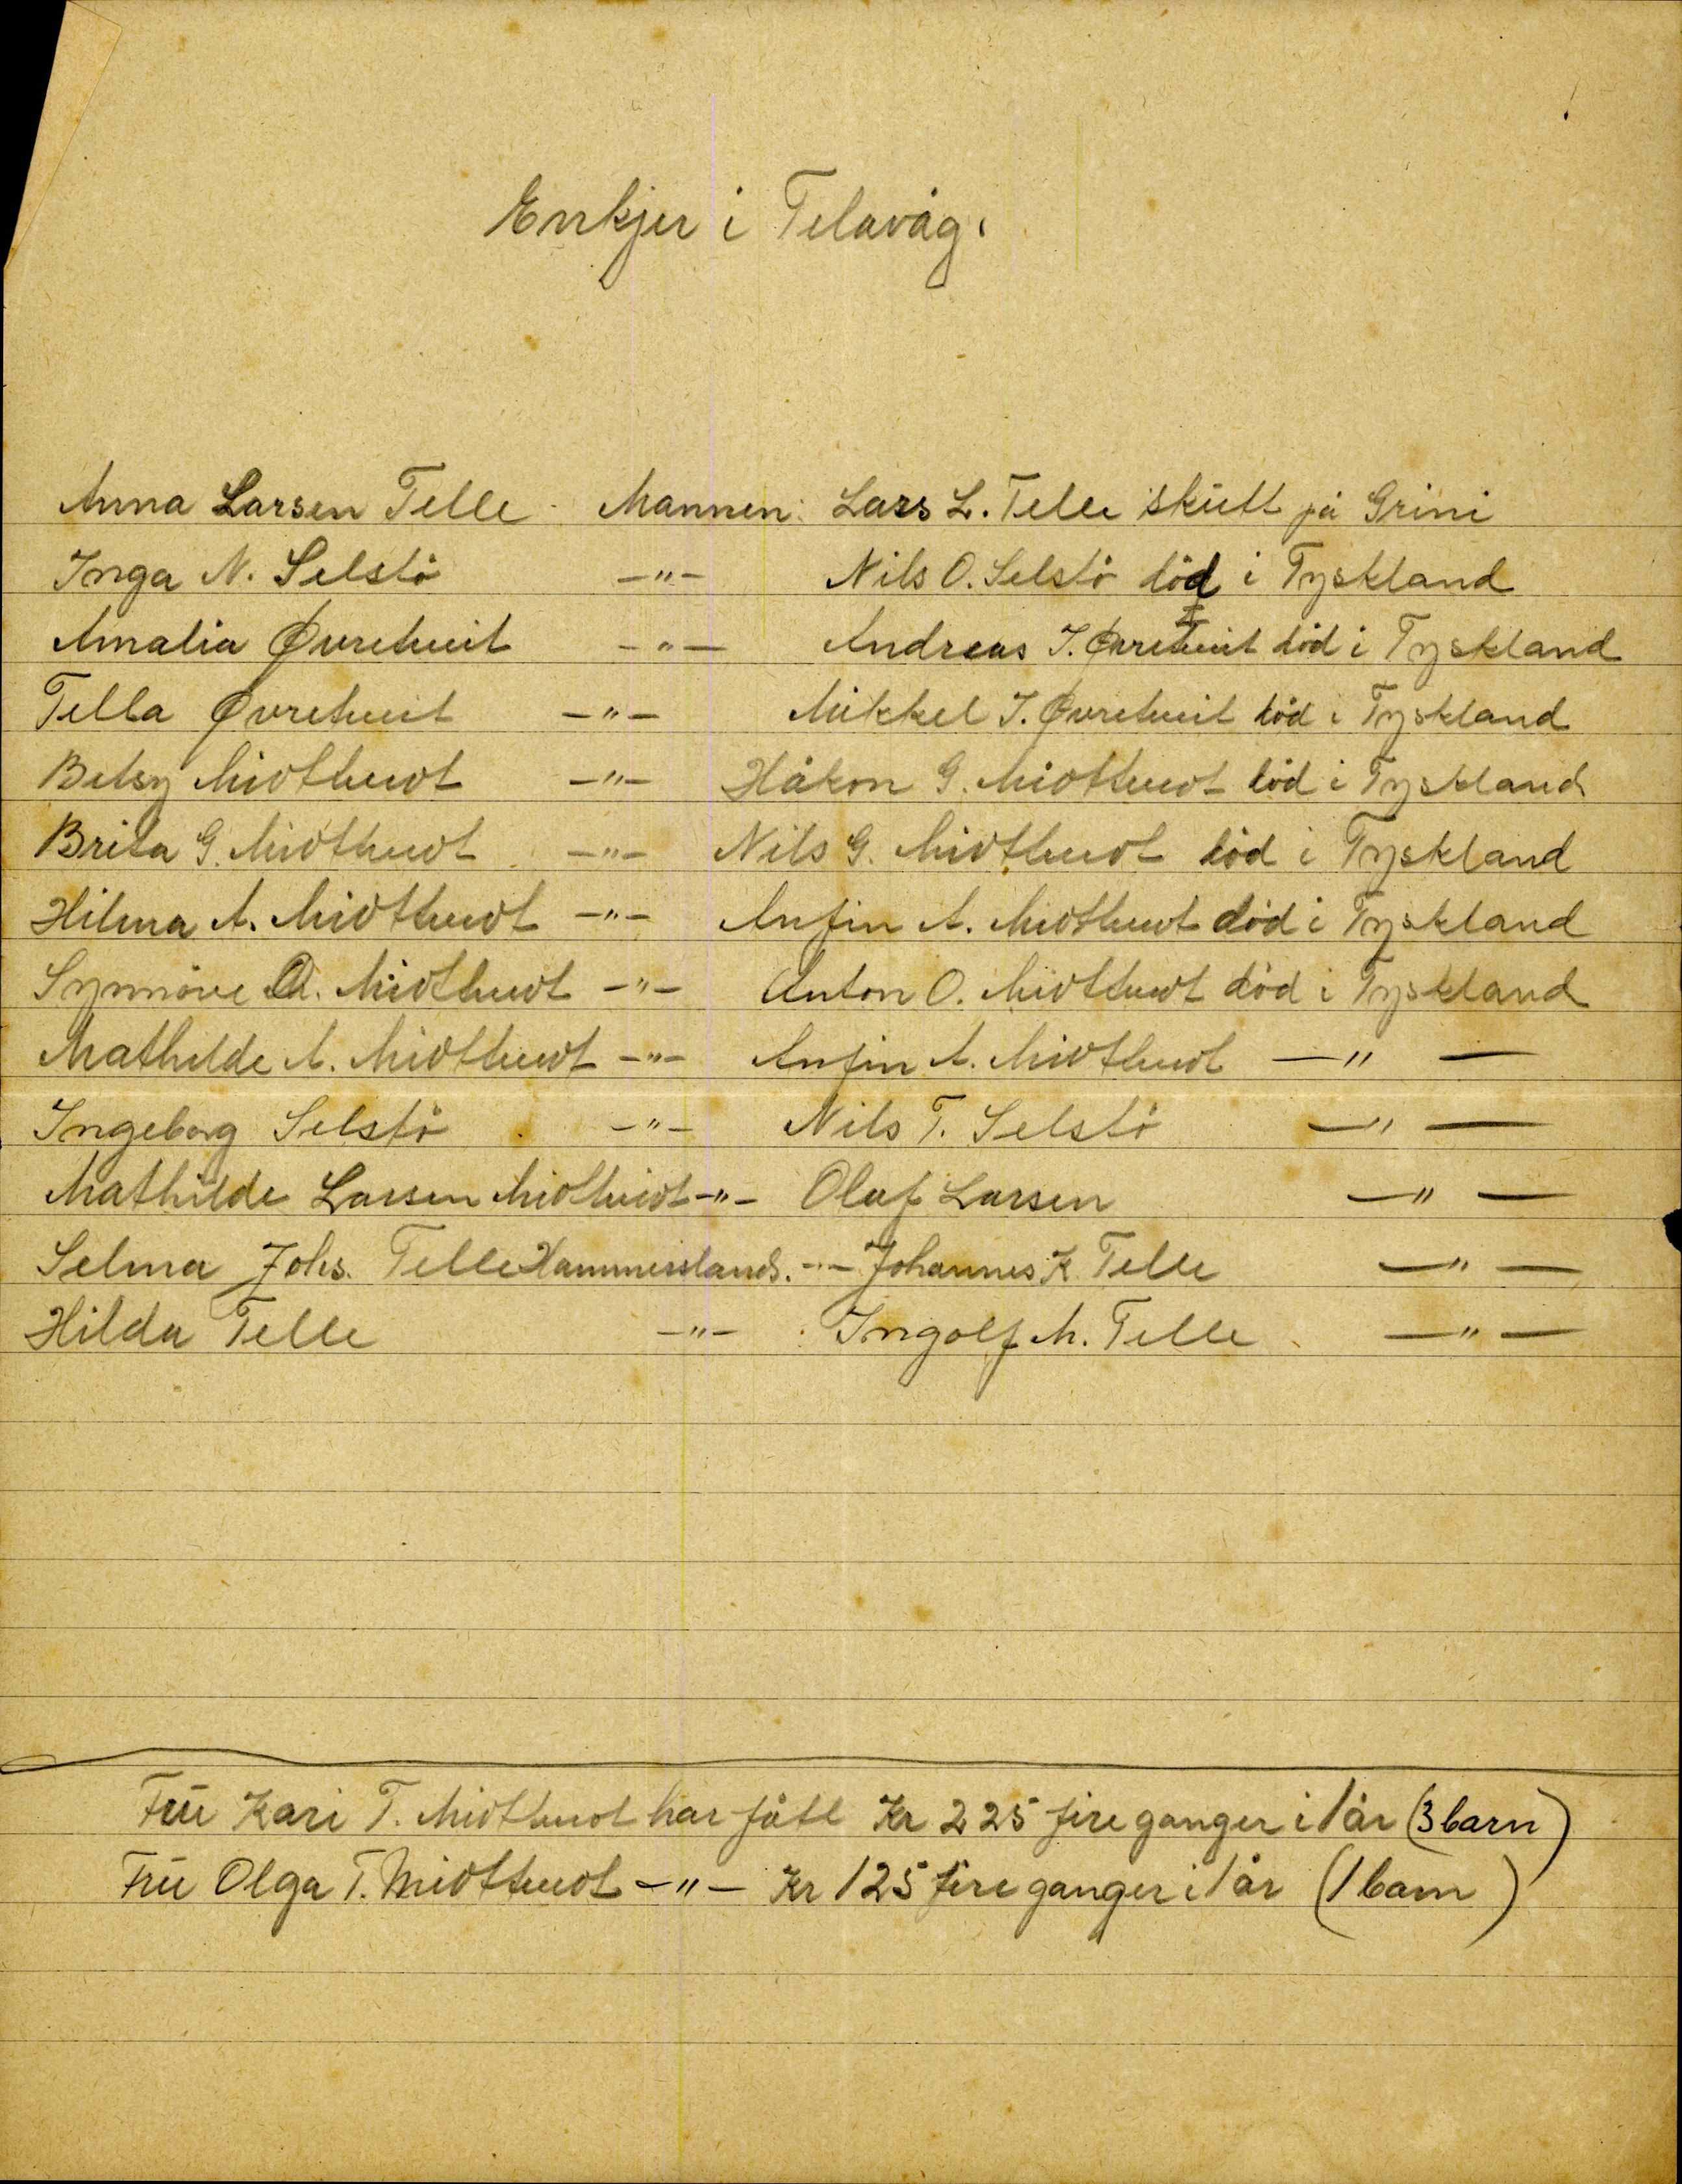 Enkjer i Telavåg.
Anna Larsen Telle Mannen: Lars L. Telle skutt på Grini
Inga N. Selstö —"— Nils O. Selstö död i Tyskland
Amalia Øvretveit —"— Andreas J. Øvretveit död i Tyskland
Tella Øvretveit —"— Mikkel J. Øvretveit död i Tyskland
Betsy Midttveidt —"— Håkon G. Midttveidt död i Tyskland
Brita G. Midttveidt —"— Nils G. Midttveidt död i Tyskland
Hilma A. Midttveidt —"— Anfin A. Midttveidt död i Tyskland
Synnöve A. Midttveidt —"— Anton O. Midttveidt död i Tyskland
Mathilde A. Midttveidt —"— Anfin A. Midttveidt —"—
Ingeborg Selstö —"— Nils T. Selstö —"—
Mathilde Larsen Midttveidt —"— Olaf Larsen —"—
Selma Johs. Telle Hammersland. —"— Johannes K Telle —"—
Hilda Telle —"— Ingolf M. Telle —"—
Frü Kari T. Midttveidt har fått Kr 225 fire ganger i 1 år (3 barn)
Frü Olga T. Midttveidt —"— Kr 125 fire ganger i 1 år (1 barn)